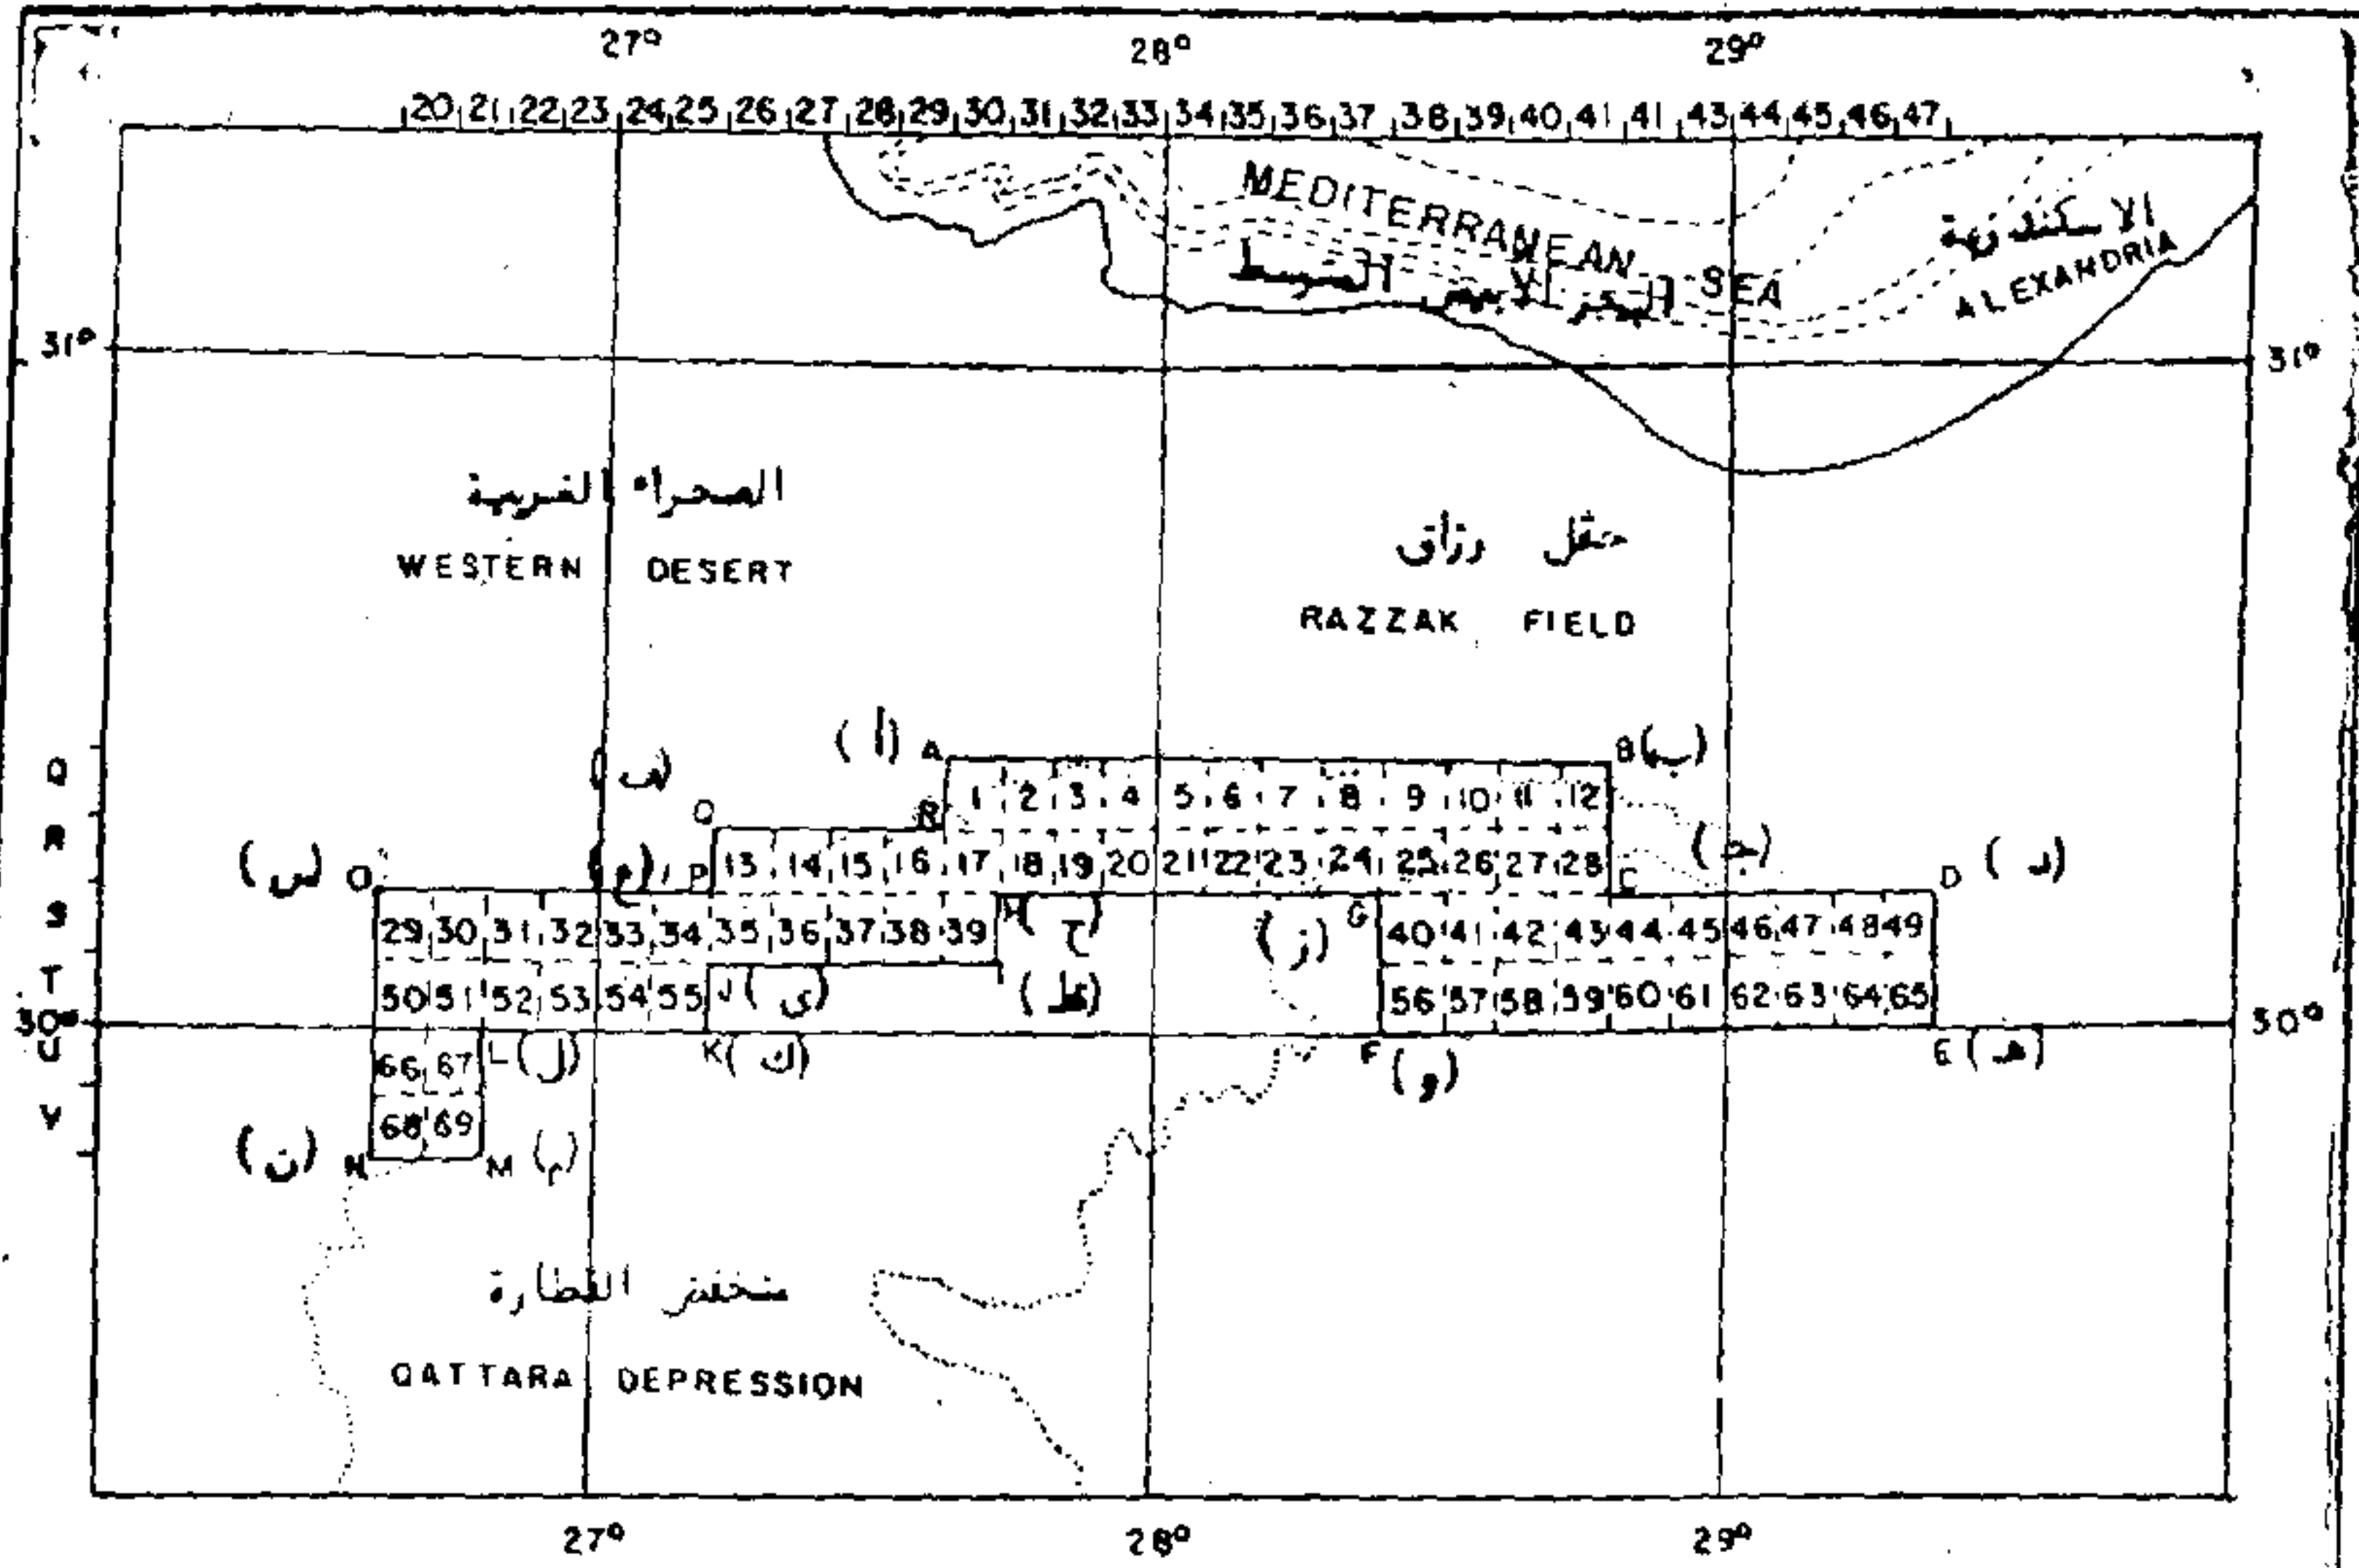 27° 28° 29°
20 21 22 23 24 25 26 27 28 29 30 31 32 33 34 35 36 37 38 39 40 41 41 43 44 45 46 47
MEDITERRANEAN SEA
البحر الابيض المتوسط
الاسكندرية
ALEXANDRIA
31° 31°
الصحراء الغربية
WESTERN DESERT
حقل رزاق
RAZZAK FIELD
(أ) A B (ب)
Q
1 2 3 4 5 6 7 8 9 10 11 12
(ف) Q R
R
13 14 15 16 17 18 19 20 21 22 23 24 25 26 27 28
(س) O (ع) P C (ج) D (د)
S
29 30 31 32 33 34 35 36 37 38 39 H (ح) (ز) G 40 41 42 43 44 45 46 47 48 49
T
50 51 52 53 54 55 J (ى) (ط) 56 57 58 59 60 61 62 63 64 65
30° 30°
U
66 67 L (ل) K (ك) F (و) E (هـ)
V
68 69
(ن) N M (م)
منخفض القطارة
QATTARA DEPRESSION
27° 28° 29°